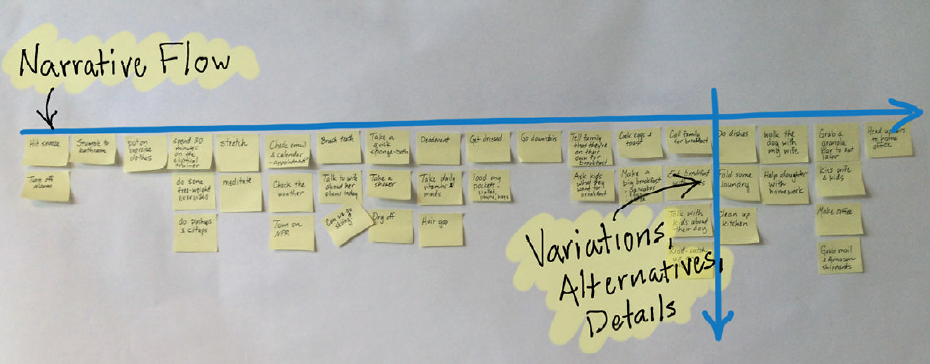 Narrative Flow
Hit snooze
Turn off
alarm
Stumble to
bathroom
put on
exercise
clothes
spend 30
minutes
on the
elliptical
trainer
do some
free-weight
exercises
do pushups
& situps
stretch
meditate
Check email
& calendar
Check the
weather
Turn on
NPR
Brush teeth
Talk to wife
about her
plans today
Take a
quick
sponge-bath
Take a
shower
Dry off
Deodorant
Take daily
vitamins &
meds
Hair goo
Get dressed
load my
pockets
wallet,
phone, keys
Go downstairs
Tell family
that they're
on their
own for
breakfast
Ask kids
what they
want for
breakfast
Cook eggs &
toast
Make a
big breakfast
Call family
for breakfast
Eat breakfast
Talk with
kids about
their day
Do dishes
Fold some
laundry
Clean up
kitchen
Walk the
dog with
my wife
Help daughter
with
homework
Grab a
granola
bar to eat
later
Kiss wife
& kids
Make coffee
Grab mail
& Amazon
shipments
Head upstairs
to home
office
Variations,
Alternatives,
Details